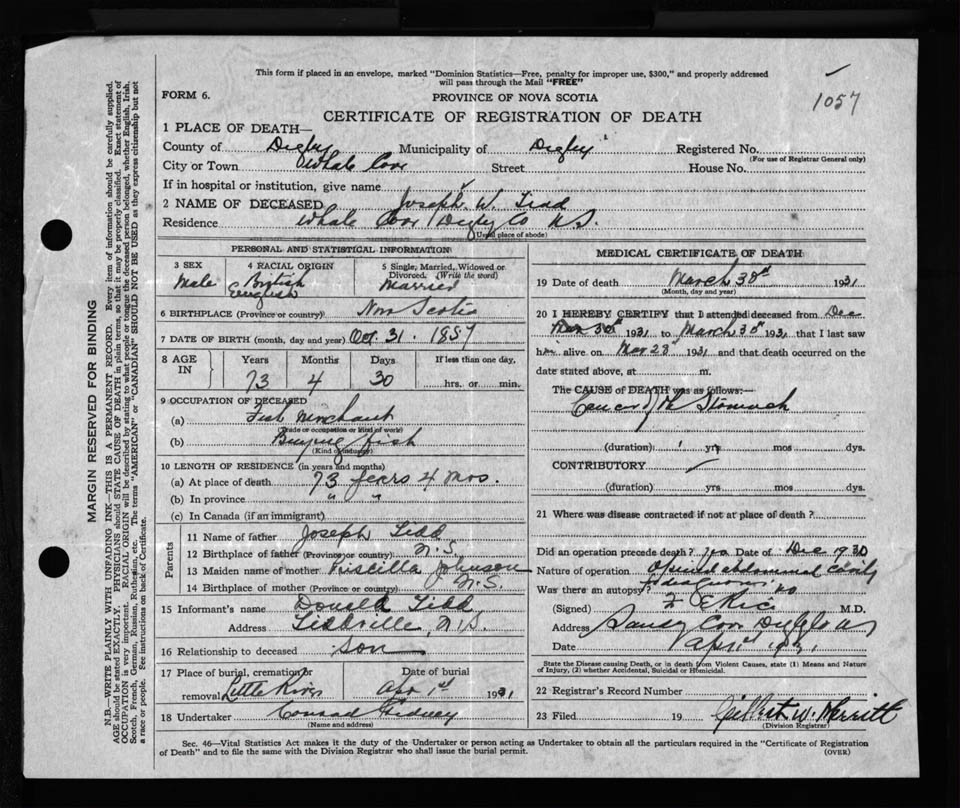 This form if placed in an envelope, marked "Dominion Statistics—Free, penalty for improper use, $300," and properly addressed
will pass through the Mail "FREE"
FORM 6.
PROVINCE OF NOVA SCOTIA
1057
CERTIFICATE OF REGISTRATION OF DEATH
1 PLACE OF DEATH—
County of Digby Municipality of Digby Registered No.
(For use of Registrar General only)
City or Town Whale Cove Street House No.
If in hospital or institution, give name
2 NAME OF DECEASED Joseph W. Tidd
Residence Whale Cove Digby Co N.S.
(Usual place of abode)
PERSONAL AND STATISTICAL INFORMATION
3 SEX
Male
4 RACIAL ORIGIN
English
5 Single, Married, Widowed or
Divorced. (Write the word)
Married
6 BIRTHPLACE (Province or country) Nova Scotia
7 DATE OF BIRTH (month, day and year) Oct 31. 1857
8 AGE
IN
Years Months Days If less than one day,
73 4 30 hrs. or min.
9 OCCUPATION OF DECEASED
(a) Fish Merchant
(Trade or occupation or kind of work)
(b) Buying fish
(Kind of industry)
10 LENGTH OF RESIDENCE (in years and months)
(a) At place of death 73 years 4 mos.
(b) In province " "
(c) In Canada (if an immigrant)
Parents
11 Name of father Joseph Tidd
12 Birthplace of father (Province or country) N.S.
13 Maiden name of mother Priscilla Johnson
14 Birthplace of mother (Province or country) N.S.
15 Informant's name Donald Tidd
Address Tiddville, N.S.
16 Relationship to deceased Son
17 Place of burial, cremation or Date of burial
removal Little River Apr 1st 1931
18 Undertaker Conrad Gidney
(Name and address)
MEDICAL CERTIFICATE OF DEATH
19 Date of death March 30th 1931
(Month, day and year)
20 I HEREBY CERTIFY that I attended deceased from Dec
1931 to March 30th 1931 that I last saw
him alive on Mar 28th 1931 and that death occurred on the
date stated above, at m.
The CAUSE of DEATH was as follows:
Cancer of the Stomach
(duration) 1 yrs mos days
CONTRIBUTORY
(duration) yrs mos days
21 Where was disease contracted if not at place of death?
Did an operation precede death? Yes Date of Dec 1930
Nature of operation Opened abdominal cavity
Was there an autopsy? no
(Signed) F E Rice M.D.
Address Sandy Cove Digby Co NS
Date April 1931
State the Disease causing Death, or in death from Violent Causes, state (1) Means and Nature
of Injury, (2) whether Accidental, Suicidal or Homicidal.
22 Registrar's Record Number
23 Filed 19 Gilbert W. Merritt
(Division Registrar)
Sec. 46—Vital Statistics Act makes it the duty of the Undertaker or person acting as Undertaker to obtain all the particulars required in the "Certificate of Registration
of Death" and to file the same with the Division Registrar who shall issue the burial permit.
(OVER)
MARGIN RESERVED FOR BINDING
N.B.—WRITE PLAINLY WITH UNFADING INK—THIS IS A PERMANENT RECORD. Every item of information should be carefully supplied.
AGE should be stated EXACTLY. PHYSICIANS should STATE CAUSE OF DEATH in plain terms, so that it may be properly classified. Exact statement of
OCCUPATION is very important. RACIAL ORIGIN will be described by stating to what people or tongue the deceased person belonged, whether English, Irish,
Scotch, French, German, Russian, Ruthenian, etc. The terms "AMERICAN" or "CANADIAN" SHOULD NOT BE USED as they express citizenship but not
a race or people. See instructions on back of Certificate.